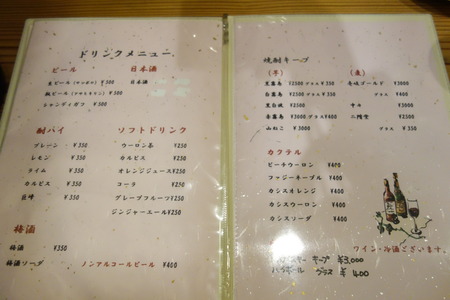 ドリンクメニュー
ビール
生ビール(サッポロ) ¥500
瓶ビール(アサヒ・キリン) ¥500
シャンディガフ ¥500
日本酒
日本酒
酎ハイ
プレーン ¥350
レモン ¥350
ライム ¥350
カルピス ¥350
巨峰 ¥350
ソフトドリンク
ウーロン茶 ¥250
カルピス ¥250
オレンジジュース ¥250
コーラ ¥250
グレープフルーツ ¥250
ジンジャーエール ¥250
梅酒
梅酒 ¥350
梅酒ソーダ
ノンアルコールビール ¥400
焼酎キープ
(芋)
黒霧島 ¥2500 グラス ¥350
白霧島 ¥2500 グラス ¥350
黒白波 ¥2500
赤霧島 ¥3000 グラス ¥400
山ねこ ¥3000
(麦)
壱岐ゴールド ¥3000
グラス ¥400
中々 ¥3000
二階堂 ¥2500
カクテル
ピーチウーロン ¥400
ファジーネーブル ¥400
カシスオレンジ ¥400
カシスウーロン ¥400
カシスソーダ ¥400
ワイン・冷酒ございます。
キープ ¥3,000
ハイボール グラス ¥400